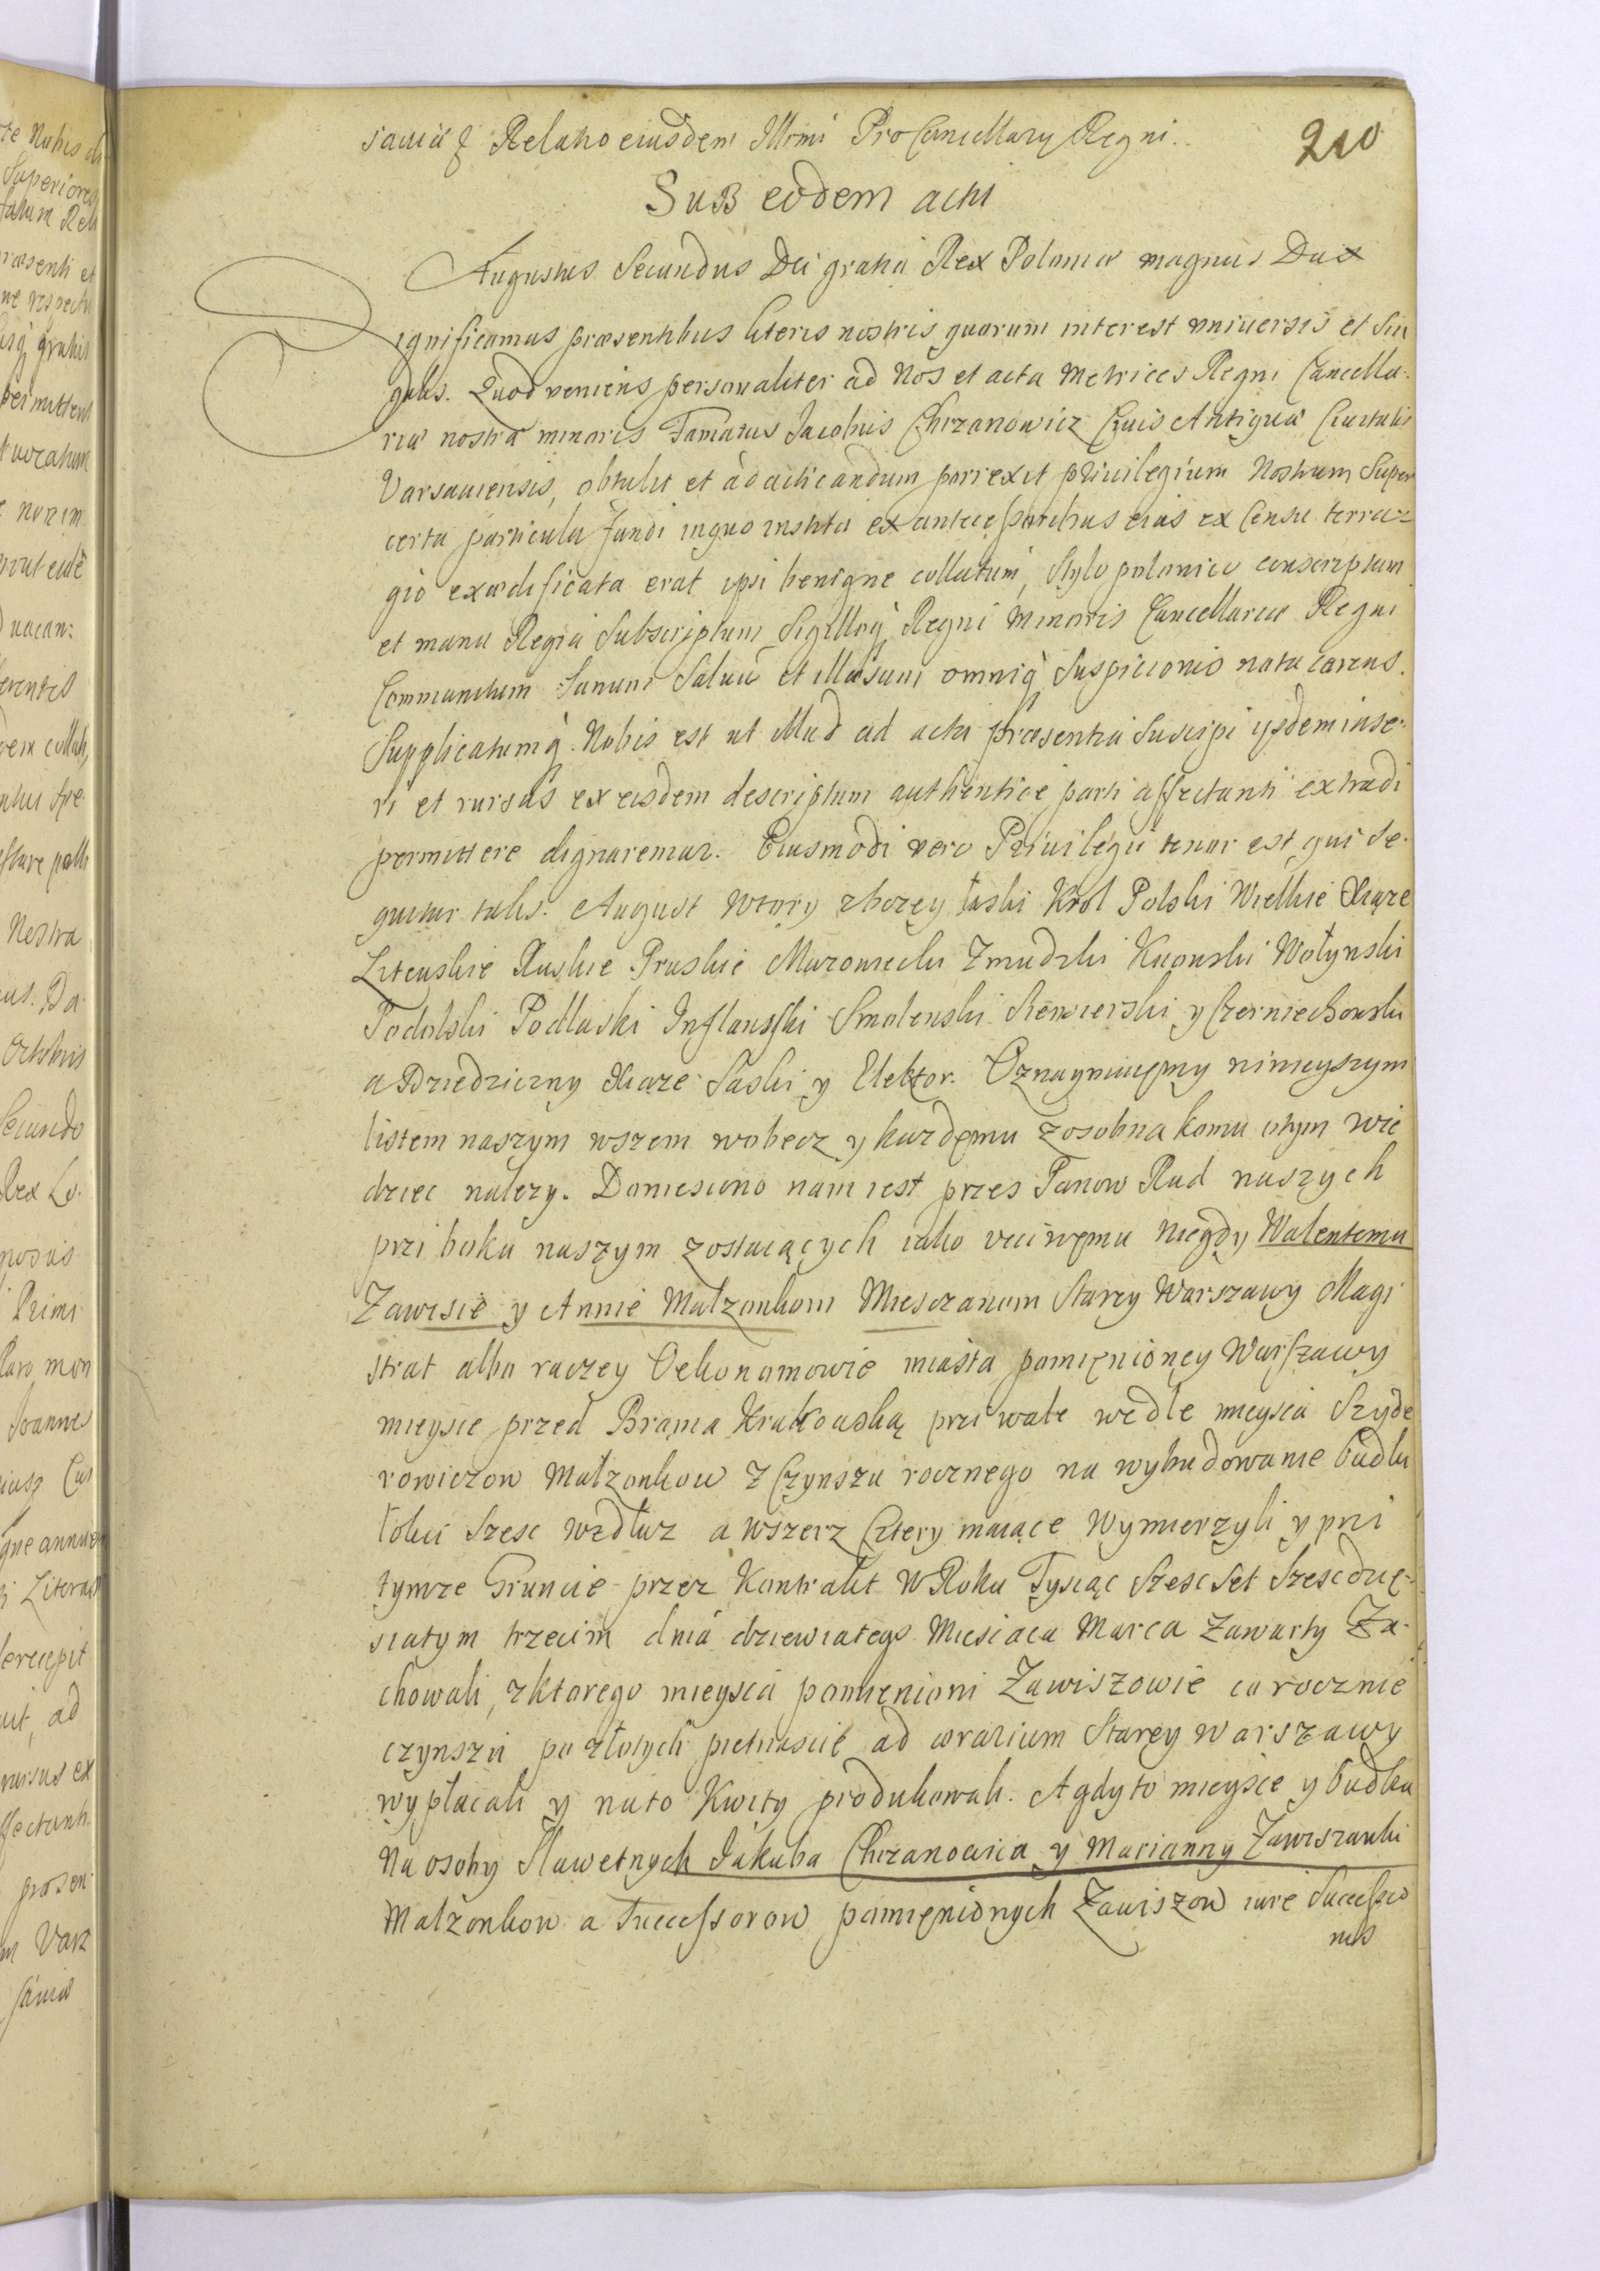 210
saviæ Relatio eiusdem Illmi ProCancellary Regni..
SuB eodem actu
Augustus Secundus Dei gratia Rex Poloniæ magnus Dux
Significamus præsentibus literis nostris quorum interest universis et Sin
gulis. Quod veniens personaliter ad Nos et acta Metrices Regni Cancella-
riæ nostræ minoris Famatus Jacobus Chrzanowicz Civis Antiquæ Civitatis
Varsaviensis, obtulit et ad acticandum porrexit privilegium Nostrum Super
certa particula fundi in quo instita ex antecessoribus eius ex Censu terra
gio exædificata erat ipsi benigne collatum, Stylo polonico conscriptum
et manu Regia Subscriptum Sigilloq Regni Minoris Cancellariæ Regni
Communitum Sanum Salvu et illæsum omniq Suspicionis nota carens.
Supplicatumq Nobis est ut illud ad acta præsentia Suscipi ysdem inse-
ri et rursus ex eisdem descriptum authentice parti affectanti extradi
permittere dignaremur. Eiusmodi vero Privilegii tenor est qui se-
quitur talis. August Wtory z bozey łaski Krol Polski Wielkie Xiąze
Litewskie Ruskie Pruskie Mazowiecki Zmudzki Kiiowski Wołynski
Podolski Podlaski Inflantski Smolenski Siewierski y Czerniechowski
a Dziedziczny Xiąze Saski y Elektor. Oznaymuiemy ninieyszym
listem naszym wszem wobecz y kazdemu zosobna komu otym wie
dziec nalezy. Doniesiono nam iest przes Panow Rad naszych
przi boku naszym zostaiących iako ucciwemu niegdy Walentemu
Zawisie y Annie Małzonkom Miesczanom Starey Warszawy Magi
strat albo raczey Oekonomowie miasta pomięnioney Warszawy
mieysce przed Brama Krakowską przi wale wedle mieysca Szyde
rowiczow Małzonkow z Czynszu rocznego na wybudowanie budku
łokci Szesc wzdłuz a wszerz Cztery maiące Wymierzyli y pri
tymze Gruncie przez Kontrakt W Roku Tysiąc Szesc Set Szescdzie-
siatym trzecim dnia dziewiatego Miesiaca Marca Zawarty Za-
chowali, z ktorego mieysca pomienioni Zawiszowie co rocznie
czynszu po złotych pietnascie ad ærarium Starey Warszawy
wypłacali y na to Kwity produkowali. A gdy to mieysce y budka
Na osoby Sławetnych Jakuba Chrzanowica y Marianny Zawiszanki
Małzonkow a Successorow pomięnionych Zawiszow iure Successio
nis